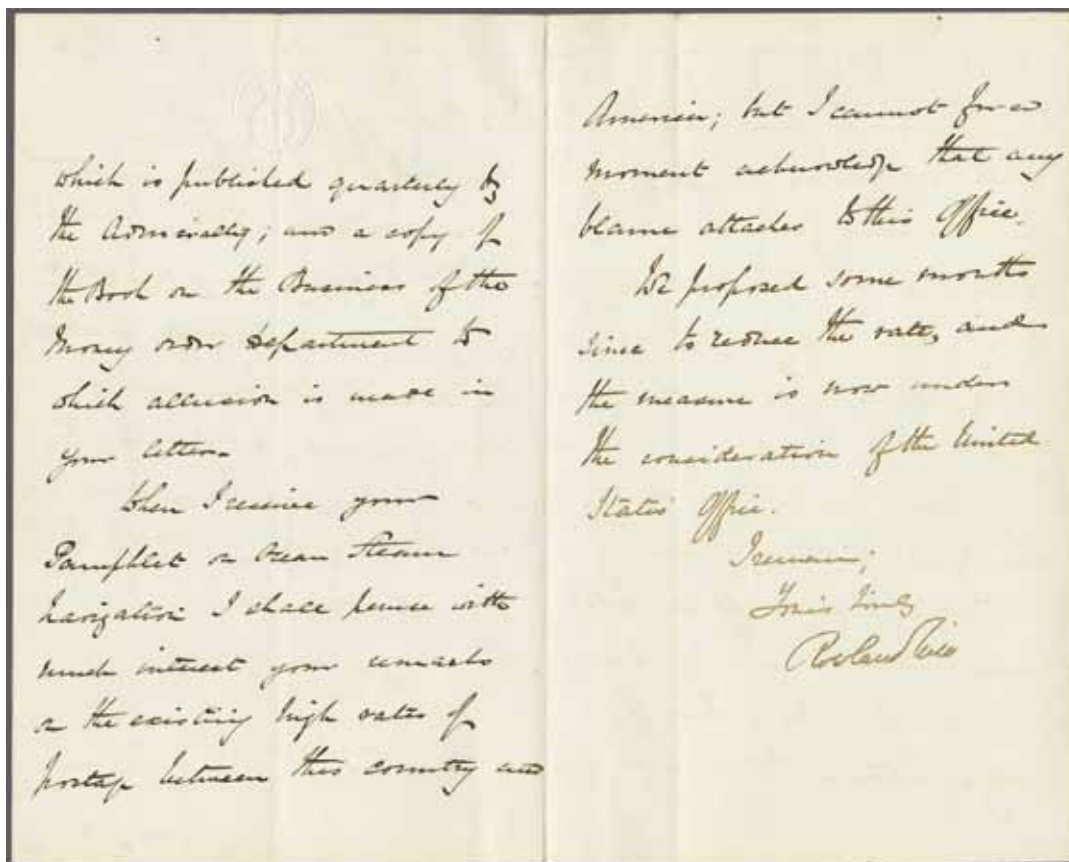 which is published quarterly by
the Admiralty; and a copy of
the Book on the Business of the
Money order Department to
which allusion is made in
your letter.
When I receive your
Pamphlet on Ocean Steam
Navigation I shall peruse with
much interest your remarks
on the existing high rates of
postage between this country and
America; but I cannot for a
moment acknowledge that any
blame attaches to this Office.
We proposed some months
since to reduce the rate, and
the measure is now under
the consideration of the United
States' Office.
I remain,
Yours truly
Rowland Hill